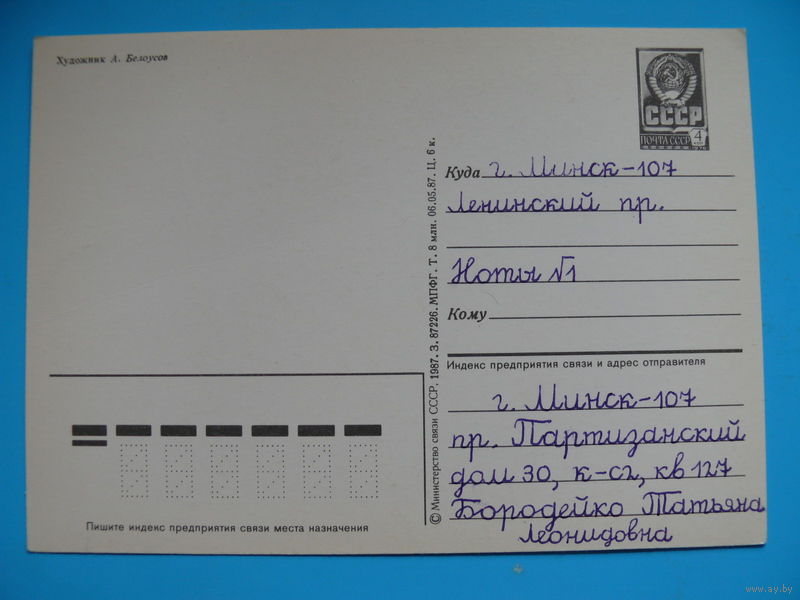 Художник А. Белоусов
СССР
ПОЧТА СССР 4
Куда г. Минск-107
Ленинский пр.
Ноты √1
Кому
Индекс предприятия связи и адрес отправителя
г. Минск-107
пр. Партизанский
дом 30, к-с2, кв 127
Бородейко Татьяна
Леонидовна
© Министерство связи СССР, 1987. З. 87226. МПФГ. Т. 8 млн. 06.05.87. Ц. 6 к.
Пишите индекс предприятия связи места назначения
www.ay.by